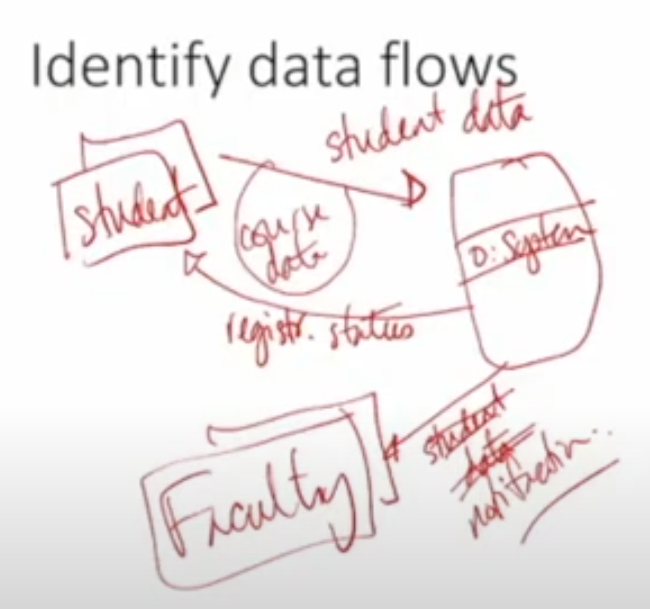 Identify data flows
student data
student
course
data
0: System
registr. status
student
data
notification..
Faculty